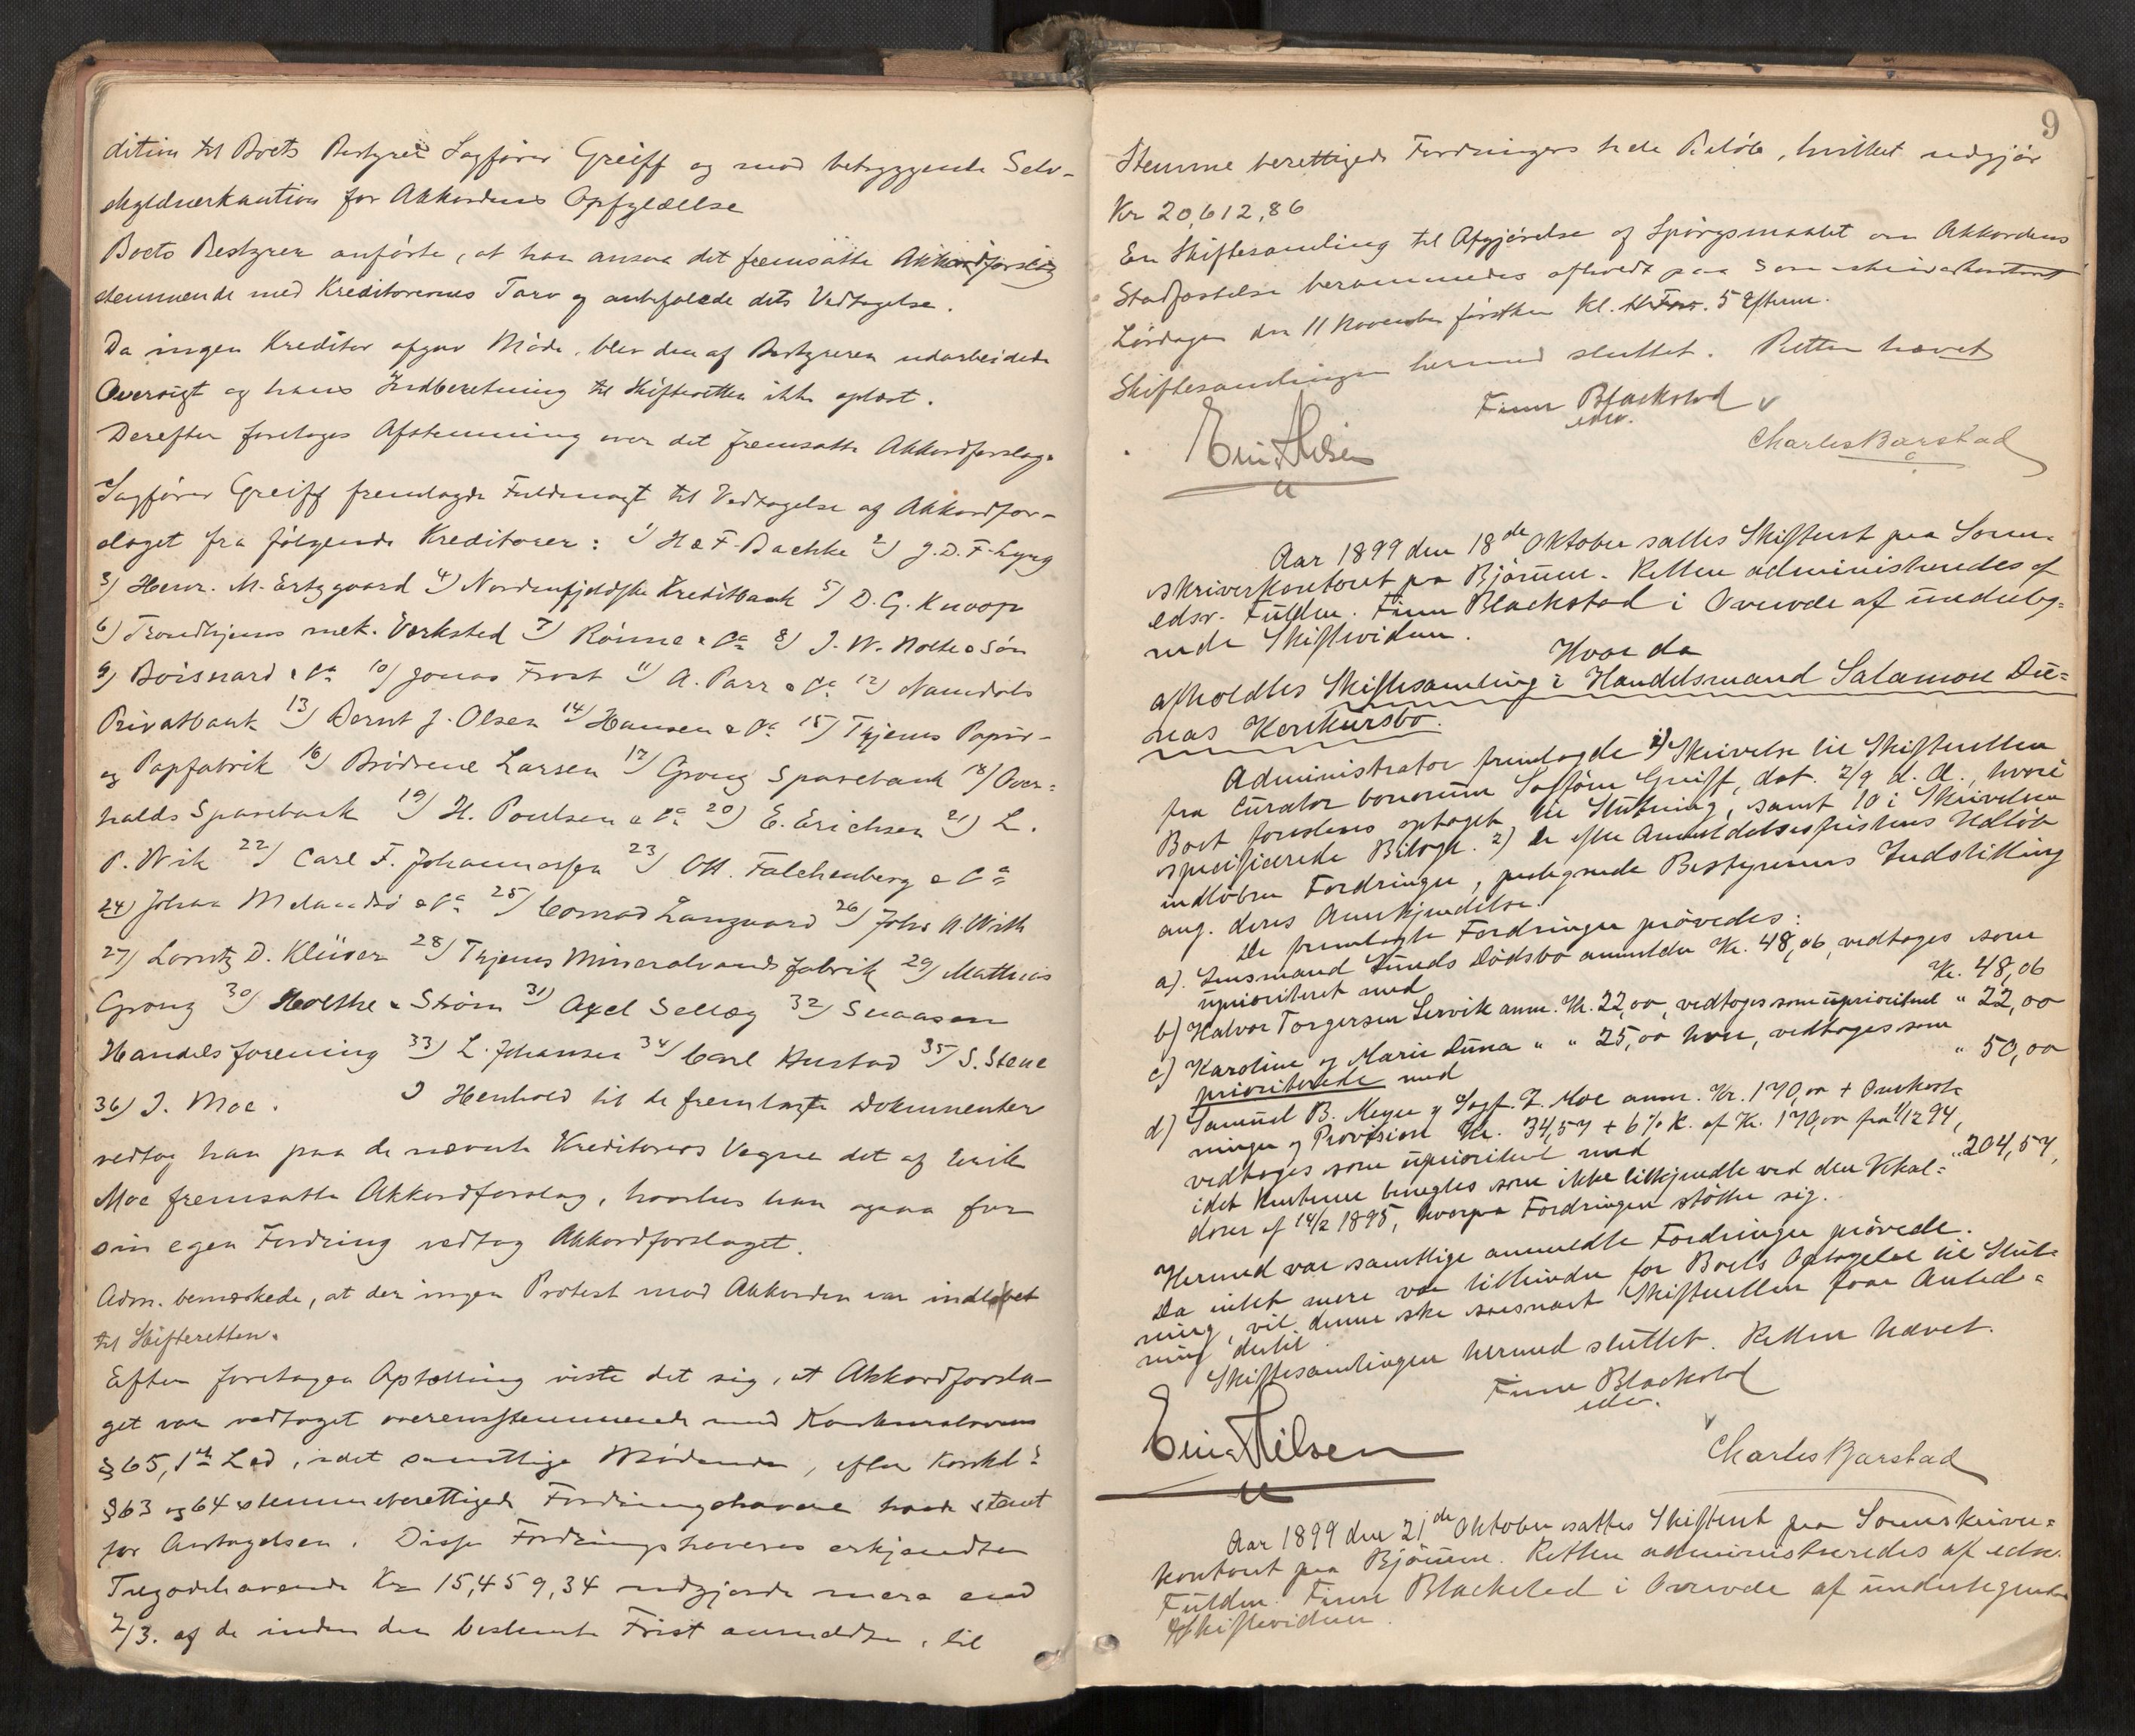 dition til Boets Bestyrer Sagfører Greiff og mod betryggende Selv-
skyldnerkaution for Akkordens Opfyldelse
Boets Bestyrer anførte, at han ansaa det fremsatte Akkordforslag
stemmende med Kreditorernes Tarv og anbefalede dets Vedtagelse.
Da ingen Kreditor afgav Møde, blev den af Bestyreren udarbeidede
Oversigt og hans Indberetning til Skifteretten ikke oplæst.
Derefter foretoges Afstemning over det fremsatte Akkordforslag.
Sagfører Greiff fremlagde Fuldmagt til Vedtagelse af Akkordfor-
slaget fra følgende Kreditorer: 1) H & F. Bachke 2) J. D. F. Lyng
3) Henr. M. Ertzgaard 4) Nordenfjeldske Kreditbank 5) D. G. Knoop
6) Trondhjems mek. Værksted 7) Rønne & Co 8) J. W. Nolte & Søn
9) Boisnard & Co 10) Jonas Frost 11) A. Parr & Co 12) Namdals
Privatbank 13) Bernt J. Olsen 14) Hansen & Co 15) Thjems Papir-
og Papfabrik 16) Brødrene Larsen 17) Grong Sparebank 18) Over-
halds Sparebank 19) H. Poulsen & Co 20) E. Erichsen 21) L.
P. Wik 22) Carl F. Johannessen 23) Ott. Falchenberg & Co
24) Johan Melandsø & Co 25) Conrad Langaard 26) John A. With
27) Lorntz D. Klüwer 28) Thjems Mineralvandsfabrik 29) Mathias
Grong 30) Holthe & Strøm 31) Axel Sellæg 32) Snaasen
Handelsforening 33) L. Johansen 34) Carl Hustad 35) S. Stene
36) J. Moe. I Henhold til de fremlagte Dokumenter
vedtog han paa de nævnte Kreditorers Vegne det af Erik
Moe fremsatte Akkordforslag, hvorhos han ogsaa for
sin egen Fordring vedtog Akkordforslaget.
Adm. bemærkede, at der ingen Protest mod Akkorden var indløbet
til Skifteretten.
Efter foretagen Optælling viste det sig, at Akkordforsla-
get var vedtaget overensstemmende med Konkurslovens
§ 65, 1ste Led, idet samtlige Mødende, efter Konkl.s
§ 63 og 64 stemmeberettigede Fordringshavere havde stemt
for Antagelsen. Disse Fordringshaveres erkjendte
Tilgodehavende Kr 15,459,34 udgjorde mere end
2/3. af de inden den bestemte Frist anmeldte, til
9
Stemme berettigede Fordringers hele Beløb, hvilket udgjør
Kr 20,612,86
En Skiftesamling til Afgjørelse af Spørgsmaalet om Akkordens
Stadfæstelse berammedes afholdt paa Sorenskriverkontoret
Lørdagen den 11 November førstkm Kl. 5 Efterm.
Skiftesamlingen hermed sluttet. Retten hævet
Finn Blackstad
edsv.
Charles Barstad
Aar 1899 den 18de Oktober sattes Skifteret paa Soren-
skriverkontoret paa Bjørum. Retten administreredes af
edsv. Fuldm. Finn Blackstad i Overvær af undertég-
nede Skiftevidner.
Hvor da
afholdtes Skiftesamling i Handelsmand Salamon Du-
nas Konkursbo.
Administrator fremlagde 1) Skrivelse til Skifteretten
fra Curator bonorum Sagfører Greiff, dat. 2/9 d. A., hvori
Boet foresloges optaget til Slutning, samt 10 i Skrivelsen
specificerede Bilage. 2) De efter Anmeldelsesfristens Udløb
indløbne Fordringer, vedlagt Bestyrerens Indstilling
ang. deres Anerkjendelse.
De fremlagte Fordringer prøvedes:
a). Lensmand Lunds Dødsbo anmeldte Kr. 48,06, vedtoges som
uprioriteret med Kr. 48,06
b) Halvor Torgersen Lervik anm. Kr. 22,00, vedtoges som uprioriteret " 22,00
c) Karoline og Marie Duna " " 25,00 hver, vedtoges som
prioriterede med " 50,00
d) Samuel B. Meyer v Sagf. J. Moe anm. Kr. 170,00 + Omkost-
ninger og Provision Kr. 34,57 + 6 % R. af Kr. 170,00 fra 1/12 94,
vedtoges som uprioriteret med " 204,57,
idet Renterne benegtes som ikke tilkjendte ved den Vexel-
dom af 14/2 1895, hvorpaa Fordringen støtter sig.
Hermed var samtlige anmeldte Fordringer prøvede.
Da intet mere var tilhinder for Boets Optagelse til Slut-
ning, vil denne ske saasnart Skifteretten faar Anled-
ning dertil.
Skiftesamlingen hermed sluttet. Retten hævet.
Finn Blackstad
edsv.
Charles Barstad
Aar 1899 den 21de Oktober sattes Skifteret paa Sorenskriver-
kontoret paa Bjørum. Retten administreredes af edsv.
Fuldm. Finn Blackstad i Overvær af undertegnede
Skiftevidner.